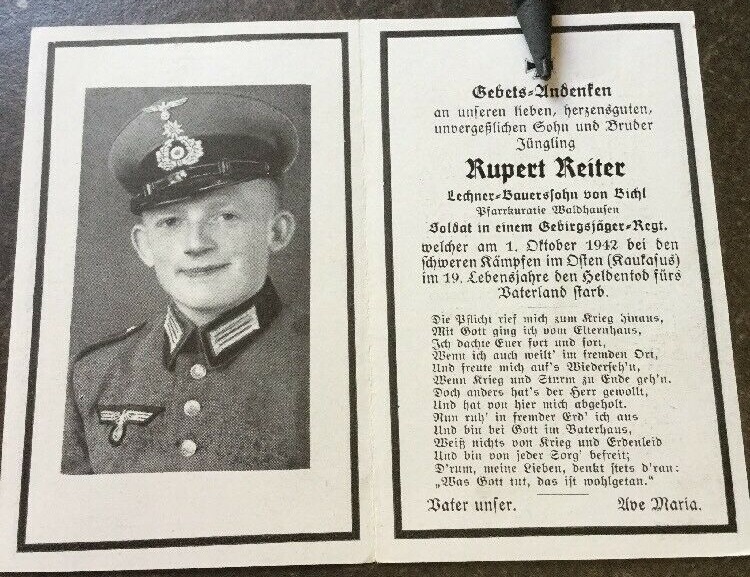 Gebets-Andenken
an unseren lieben, herzensguten,
unvergeßlichen Sohn und Bruder
Jüngling
Rupert Reiter
Lechner-Bauerssohn von Bichl
Pfarrkuratie Waldhausen
Soldat in einem Gebirgsjäger-Regt.
welcher am 1. Oktober 1942 bei den
schweren Kämpfen im Osten (Kaukasus)
im 19. Lebensjahre den Heldentod fürs
Vaterland starb.
Die Pflicht rief mich zum Krieg hinaus,
Mit Gott ging ich vom Elternhaus,
Ich dachte Euer fort und fort,
Wenn ich auch weilt' im fremden Ort,
Und freute mich auf's Wiederseh'n,
Wenn Krieg und Sturm zu Ende geh'n.
Doch anders hat's der Herr gewollt,
Und hat von hier mich abgeholt.
Nun ruh' in fremder Erd' ich aus
Und bin bei Gott im Vaterhaus,
Weiß nichts von Krieg und Erdenleid
Und bin von jeder Sorg' befreit;
D'rum, meine Lieben, denkt stets d'ran:
„Was Gott tut, das ist wohlgetan."
Vater unser. Ave Maria.